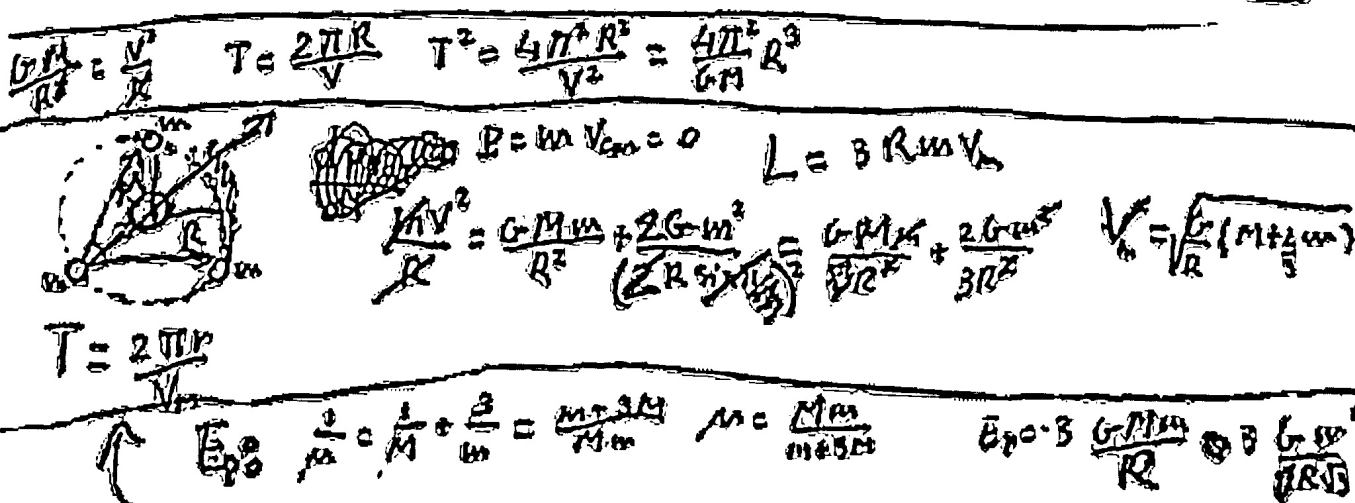 GM/R² = V²/R   T = 2πR/V   T² = 4π²R²/V² = 4π²/GM R³
m   2T   P = m V_cm = 0   L = 3 R m V_m
R   m   m   mV²/R = GMm/R² + 2Gm²/(2R sin)² = GMm/R² + 2Gm²/3R²   V_m = √(G/R (M + 2/3 m))
T = 2πr/V_m
E_p:   1/μ = 1/M + 3/m = m+3M/Mm   μ = Mm/m+3M   E_p = -3 GMm/R - 3 Gm²/R√3